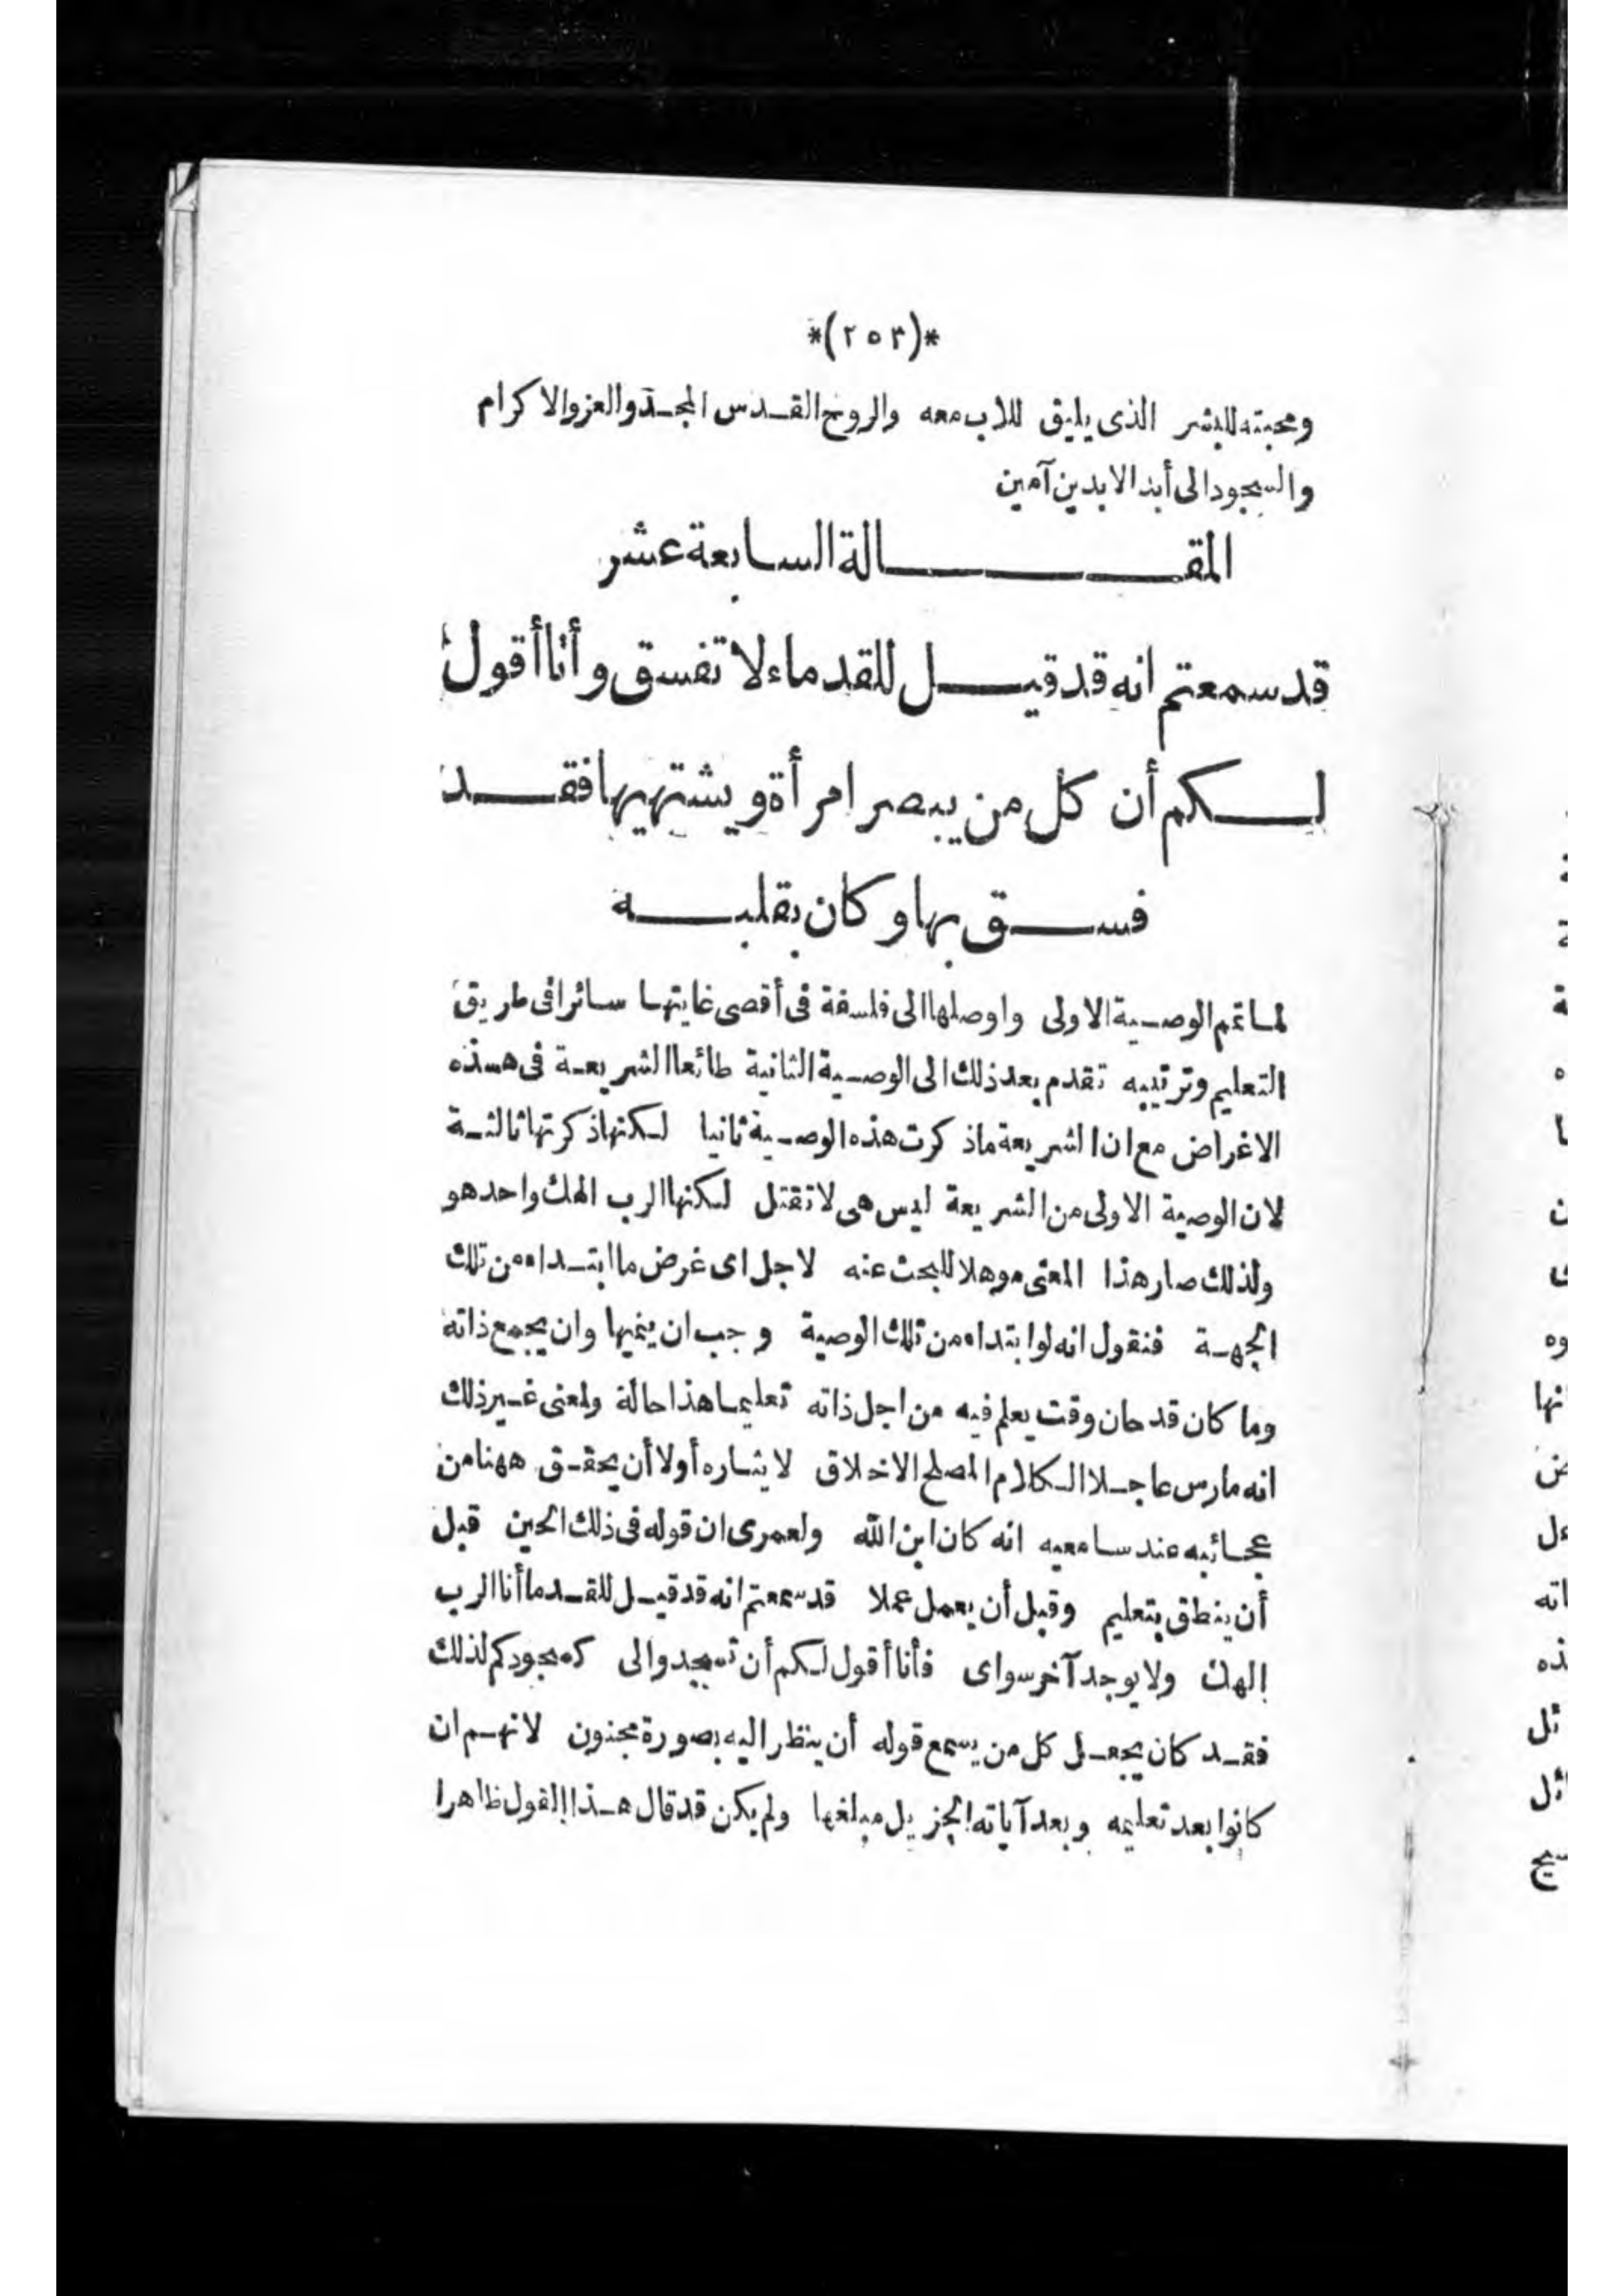 *(٢٥٣)*
ومحبته للبشر الذى يليق للاب معه والروح القدس المجد والعز والاكرام
والسجود الى أبد الابدين آمين
المقالة السابعة عشر
قد سمعتم انه قد قيل للقدماء لا تفسق وأنا أقول
لكم أن كل من يبصر امرأة ويشتهيها فقد
فسق بها وكان بقلبه
لما تمم الوصية الاولى واوصلها الى فلسفة فى أقصى غايتها سائرا فى طريق
التعليم وترتيبه تقدم بعد ذلك الى الوصية الثانية طائعا الشريعة فى هذه
الاغراض مع ان الشريعة ماذكرت هذه الوصية ثانيا لكنها ذكرتها ثالثة
لان الوصية الاولى من الشريعة ليس هى لا تقتل لكنها الرب الهك واحد هو
ولذلك صار هذا المعنى موهلا للبحث عنه لاجل اى غرض ما ابتداء من تلك
الجهة فنقول انه لو ابتداء من تلك الوصية وجب ان ينميها وان يجمع ذاته
وما كان قد حان وقت يعلم فيه من اجل ذاته تعليما هذا حالة ولمعنى غير ذلك
انه مارس عاجلا الكلام المصلح الاخلاق لايثاره أولا أن يحقق ههنا من
عجائبه عند سامعيه انه كان ابن الله ولعمرى ان قوله فى ذلك الحين قبل
أن ينطق بتعليم وقبل أن يعمل عملا قد سمعتم انه قد قيل للقدما أنا الرب
الهك ولا يوجد آخر سواى فأنا أقول لكم أن تسجدوا لى كسجودكم لذلك
فقد كان يجعل كل من يسمع قوله أن ينظر اليه بصورة مجنون لانهم ان
كانوا بعد تعليمه وبعد آياته الجزيل مبلغها ولم يكن قد قال هذا القول ظاهرا